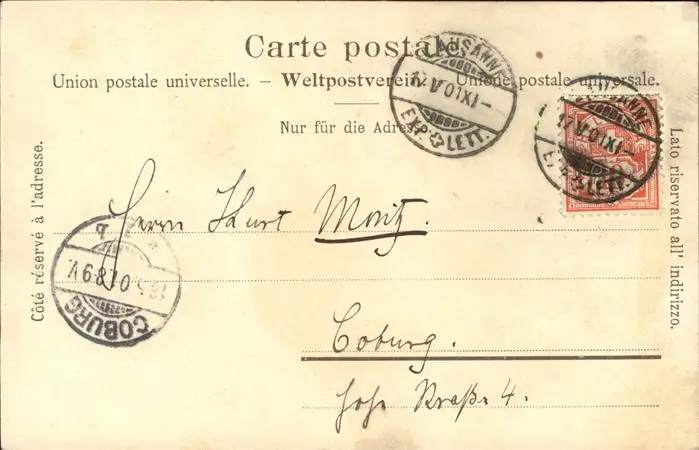 Carte postale.
Union postale universelle. – Weltpostverein. – Unione postale universale.
Nur für die Adresse.
Côté réservé à l'adresse.
Lato riservato all' indirizzo.
LAUSANNE
17.V.01.XI–
EXP. LETT.
LAUSANNE
17.V.01.XI–
EXP. LETT.
COBURG
18.5.01.8-9V.
Herrn Kurt Moritz.
Coburg.
Hohe Straße 4.